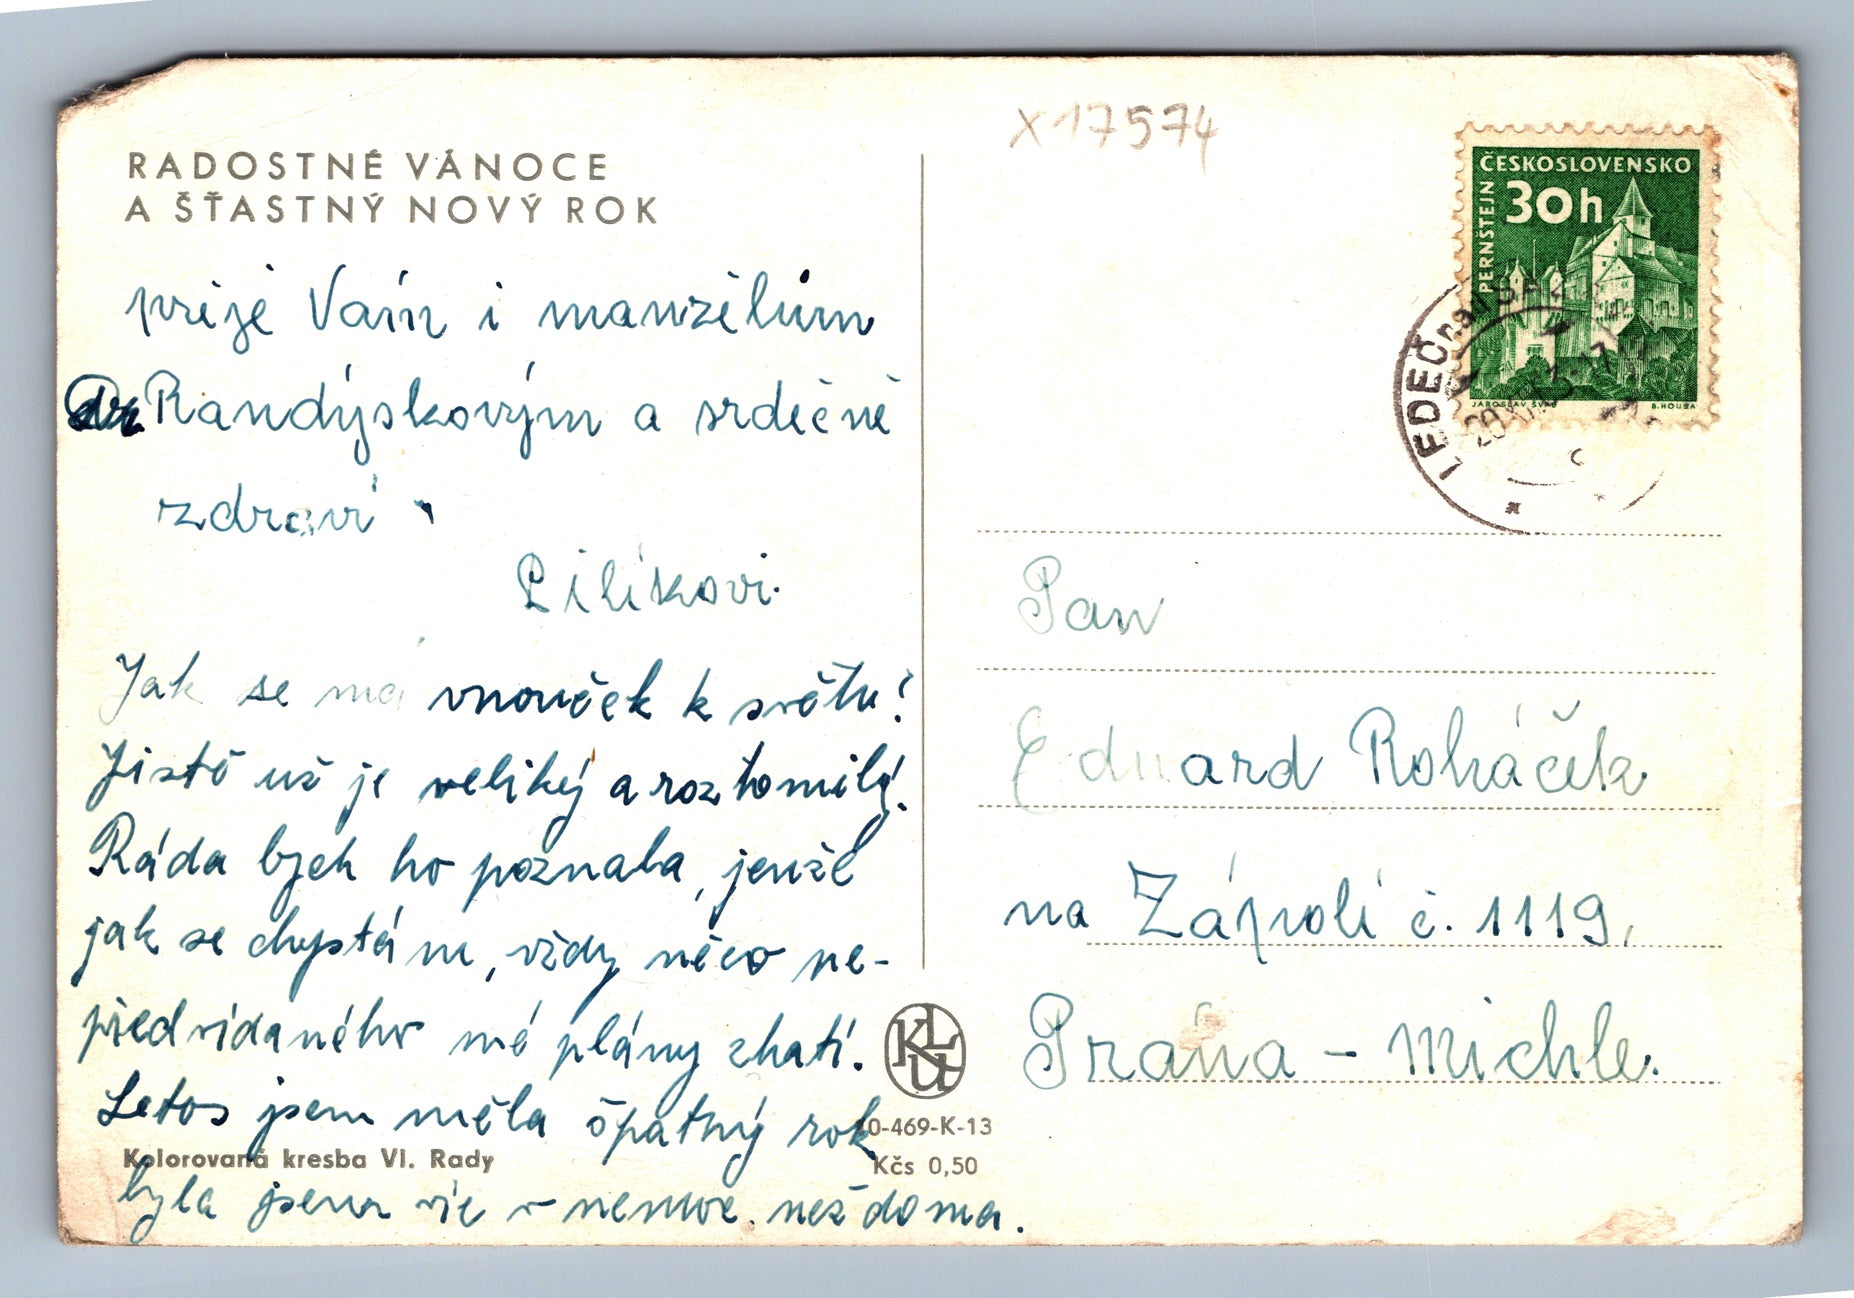 RADOSTNÉ VÁNOCE
A ŠŤASTNÝ NOVÝ ROK
přeje Vám i manželům
Randýskovým a srdečně
zdraví
Pilíkovi.
Jak se má vnouček k světu?
Jistě už je veliký a roztomilý.
Ráda bych ho poznala, jenže
jak se chystám, vždy něco ne-
předvídaného mé plány zhatí.
Letos jsem měla špatný rok
byla jsem víc v nemoc. než doma.
Kolorovaná kresba Vl. Rady
KLU
0-469-K-13
Kčs 0,50
X17574
ČESKOSLOVENSKO
30h
PERNŠTEJN
JAROSLAV ŠVÁB
B. HOUSA
LEDEČ n. SÁZ
Pan
Eduard Roháček
na Zápolí č. 1119,
Praha - Michle.